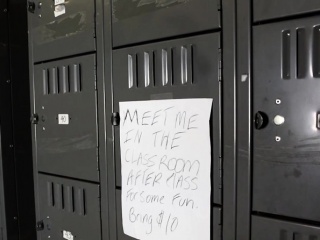 MEET ME
IN THE
CLASSROOM
AFTER CLASS
For Some Fun.
Bring $10